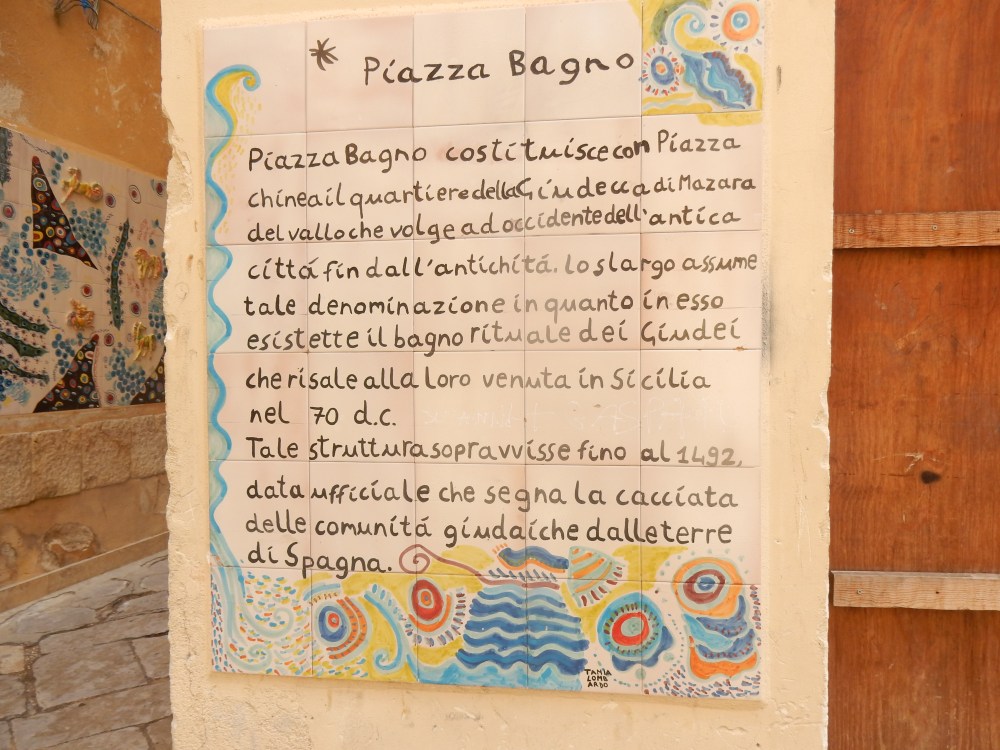 * Piazza Bagno
Piazza Bagno costituisce con Piazza
chinea il quartiere della Giudecca di Mazara
del vallo che volge ad occidente dell'antica
cittá fin dall'antichitá. lo slargo assume
tale denominazione in quanto in esso
esistette il bagno rituale dei Giudei
che risale alla loro venuta in Sicilia
nel 70 d.c.
Tale struttura sopravvisse fino al 1492,
data ufficiale che segna la cacciata
delle comunitá giudaiche dalle terre
di Spagna.
TANIA
LOMB
ARDO